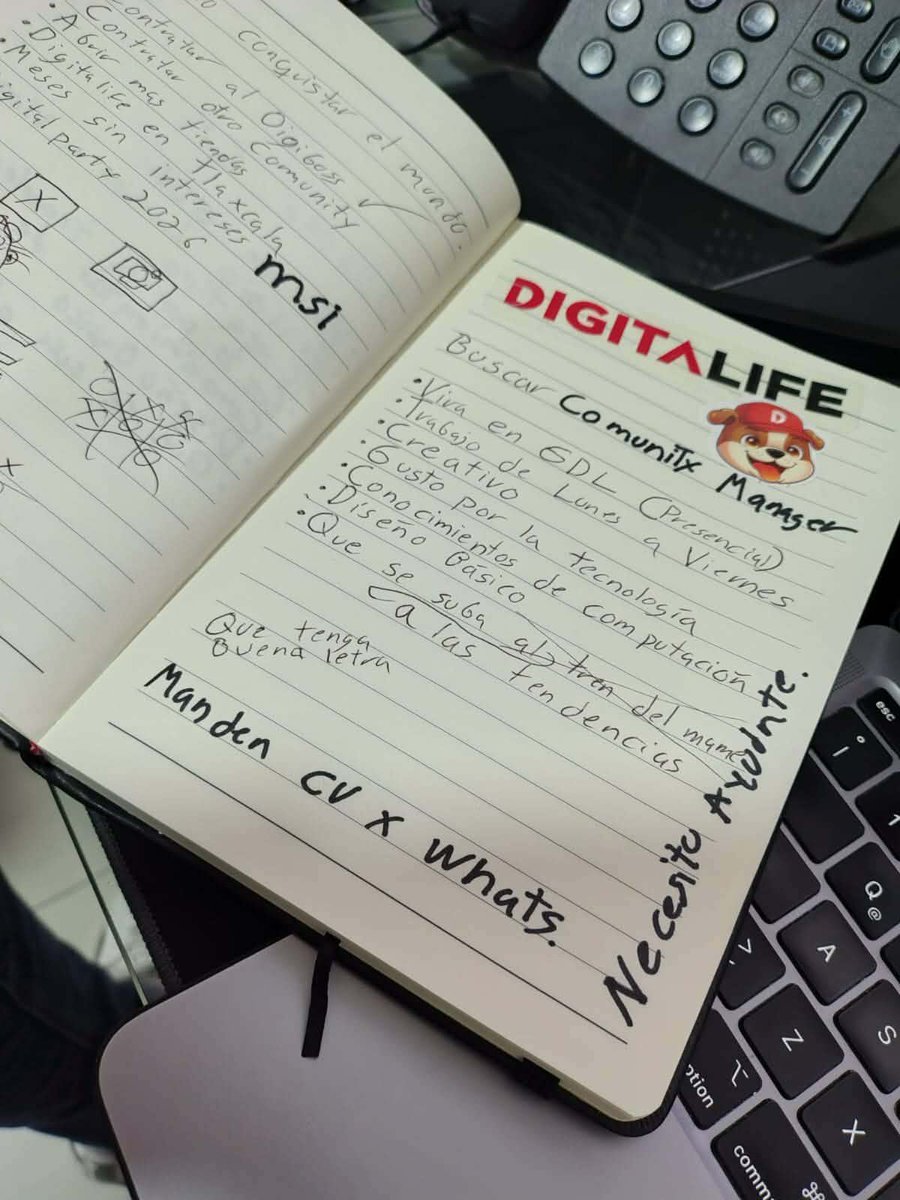 conquistar el mundo.
contratar al Digiboss ✓
• Contratar otro Comunity
• Abrir mas tiendas
• Digitalife en Tlaxcala
• Meses sin intereses
Digitalparty 2026
msi
DIGITALIFE
Buscar Comunity Manager
• Viva en GDL (Presencial)
• Trabajo de Lunes a Viernes
• Creativo
• Gusto por la tecnología
• Conocimientos de computación
• Diseño Básico
• Que se suba al tren del mame
a las tendencias
Que tenga
Buena letra
Manden CV x Whats.
Necesito Ayudnte.
esc
1
Q
@
A
Z
S
X
option
⌥
⌘